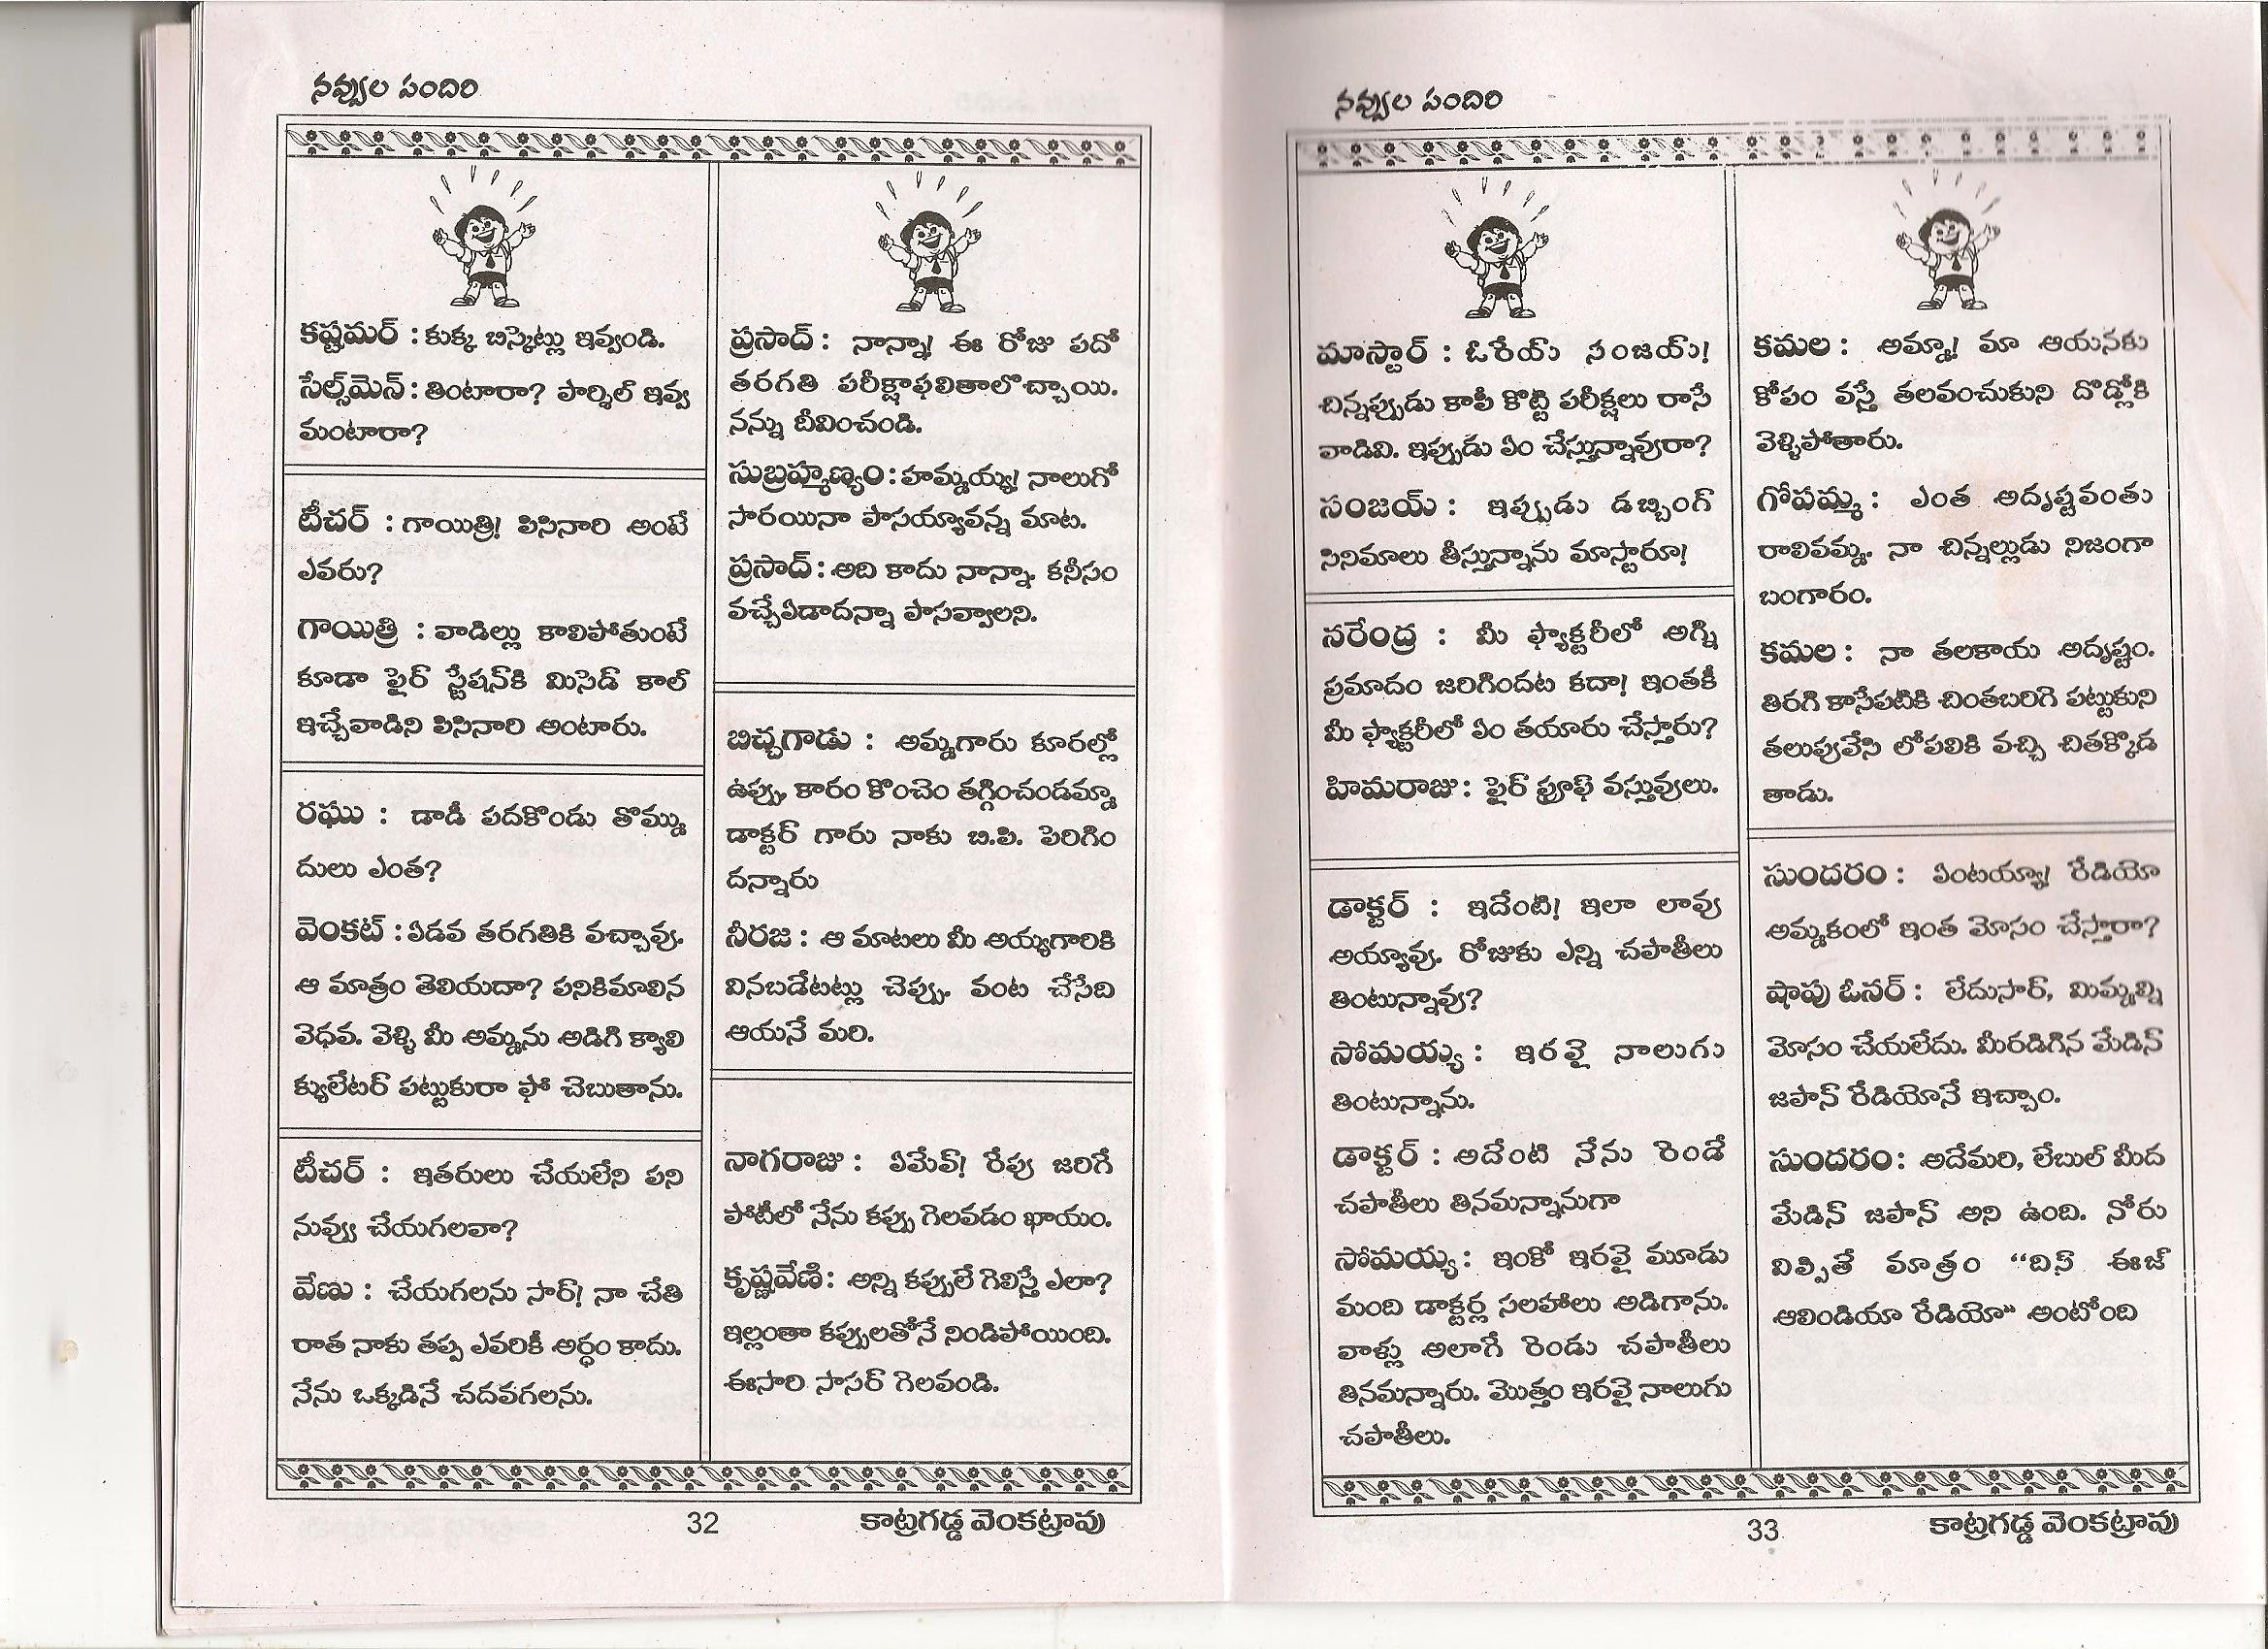 నవ్వుల పందిరి
కష్టమర్ : కుక్క బిస్కెట్లు ఇవ్వండి.
సేల్స్‌మెన్ : తింటారా? పార్శిల్ ఇవ్వ
మంటారా?
టీచర్ : గాయిత్రి! పిసినారి అంటే
ఎవరు?
గాయిత్రి : వాడిల్లు కాలిపోతుంటే
కూడా ఫైర్ స్టేషన్‌కి మిసెడ్ కాల్
ఇచ్చేవాడిని పిసినారి అంటారు.
రఘు : డాడీ పదకొండు తొమ్ము
దులు ఎంత?
వెంకట్ : ఏడవ తరగతికి వచ్చావు.
ఆ మాత్రం తెలియదా? పనికిమాలిన
వెధవ. వెళ్ళి మీ అమ్మను అడిగి క్యాలి
క్యులేటర్ పట్టుకురా ఫో చెబుతాను.
టీచర్ : ఇతరులు చేయలేని పని
నువ్వు చేయగలవా?
వేణు : చేయగలను సార్! నా చేతి
రాత నాకు తప్ప ఎవరికీ అర్ధం కాదు.
నేను ఒక్కడినే చదవగలను.
ప్రసాద్ : నాన్నా! ఈ రోజు పదో
తరగతి పరీక్షాఫలితాలొచ్చాయి.
నన్ను దీవించండి.
సుబ్రహ్మణ్యం : హమ్మయ్య! నాలుగో
సారయినా పాసయ్యావన్న మాట.
ప్రసాద్ : అది కాదు నాన్నా. కనీసం
వచ్చేఏడాదన్నా పాసవ్వాలని.
బిచ్చగాడు : అమ్మగారు కూరల్లో
ఉప్పు, కారం కొంచెం తగ్గించండమ్మా
డాక్టర్ గారు నాకు బి.పి. పెరిగిం
దన్నారు
నీరజ : ఆ మాటలు మీ అయ్యగారికి
వినబడేటట్లు చెప్పు. వంట చేసేది
ఆయనే మరి.
నాగరాజు : ఏమేవ్! రేపు జరిగే
పోటీలో నేను కప్పు గెలవడం ఖాయం.
కృష్ణవేణి : అన్ని కప్పులే గెలిస్తే ఎలా?
ఇల్లంతా కప్పులతోనే నిండిపోయింది.
ఈసారి సాసర్ గెలవండి.
32
కాట్రగడ్డ వెంకట్రావు
నవ్వుల పందిరి
మాస్టార్ : ఓరేయ్ సంజయ్!
చిన్నప్పుడు కాపీ కొట్టి పరీక్షలు రాసే
వాడివి. ఇప్పుడు ఏం చేస్తున్నావురా?
సంజయ్ : ఇప్పుడు డబ్బింగ్
సినిమాలు తీస్తున్నాను మాస్టారూ!
నరేంద్ర : మీ ఫ్యాక్టరీలో అగ్ని
ప్రమాదం జరిగిందట కదా! ఇంతకీ
మీ ఫ్యాక్టరీలో ఏం తయారు చేస్తారు?
హిమరాజు : ఫైర్ ప్రూఫ్ వస్తువులు.
డాక్టర్ : ఇదేంటి! ఇలా లావు
అయ్యావు. రోజుకు ఎన్ని చపాతీలు
తింటున్నావు?
సోమయ్య : ఇరవై నాలుగు
తింటున్నాను.
డాక్టర్ : అదేంటి నేను రెండే
చపాతీలు తినమన్నానుగా
సోమయ్య : ఇంకో ఇరవై మూడు
మంది డాక్టర్ల సలహాలు అడిగాను.
వాళ్లు అలాగే రెండు చపాతీలు
తినమన్నారు. మొత్తం ఇరవై నాలుగు
చపాతీలు.
కమల : అమ్మా! మా ఆయనకు
కోపం వస్తే తలవంచుకుని దొడ్లోకి
వెళ్ళిపోతారు.
గోపమ్మ : ఎంత అదృష్టవంతు
రాలివమ్మ. నా చిన్నల్లుడు నిజంగా
బంగారం.
కమల : నా తలకాయ అదృష్టం.
తిరగి కాసేపటికి చింతబరిగె పట్టుకుని
తలుపువేసి లోపలికి వచ్చి చితక్కొడ
తాడు.
సుందరం : ఏంటయ్యా! రేడియో
అమ్మకంలో ఇంత మోసం చేస్తారా?
షాపు ఓనర్ : లేదుసార్, మిమ్మల్ని
మోసం చేయలేదు. మీరడిగిన మేడిన్
జపాన్ రేడియోనే ఇచ్చాం.
సుందరం : అదేమరి, లేబుల్ మీద
మేడిన్ జపాన్ అని ఉంది. నోరు
విప్పితే మాత్రం “దిస్ ఈజ్
ఆలిండియా రేడియో” అంటోంది
33
కాట్రగడ్డ వెంకట్రావు